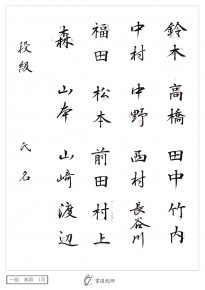 鈴木 高橋 田中 竹内
中村 中野 西村 長谷川
福田 松本 前田 村上
森 山本 山崎 渡辺
段級 氏名
一般